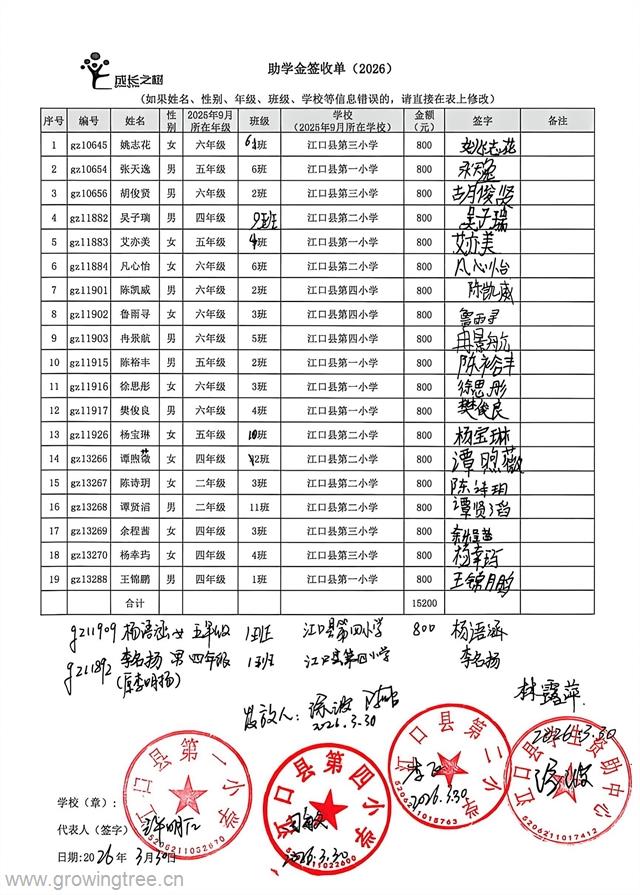 成长之树
助学金签收单（2026）
（如果姓名、性别、年级、班级、学校等信息错误的，请直接在表上修改）
序号 编号 姓名 性别 2025年9月所在年级 班级 学校（2025年9月所在学校） 金额（元） 签字 备注
1 gz10645 姚志花 女 六年级 6班 江口县第三小学 800 姚志花
2 gz10654 张天逸 男 五年级 6班 江口县第一小学 800 张天逸
3 gz10656 胡俊贤 男 六年级 2班 江口县第三小学 800 胡俊贤
4 gz11882 吴子瑞 男 四年级 班 江口县第二小学 800 吴子瑞
5 gz11883 艾亦美 女 五年级 班 江口县第一小学 800 艾亦美
6 gz11884 凡心怡 女 六年级 6班 江口县第二小学 800 凡心怡
7 gz11901 陈凯威 男 六年级 2班 江口县第四小学 800 陈凯威
8 gz11902 鲁雨寻 女 六年级 3班 江口县第四小学 800 鲁雨寻
9 gz11903 冉景航 男 六年级 5班 江口县第四小学 800 冉景航
10 gz11915 陈裕丰 男 五年级 2班 江口县第一小学 800 陈裕丰
11 gz11916 徐思彤 女 六年级 3班 江口县第一小学 800 徐思彤
12 gz11917 樊俊良 男 六年级 4班 江口县第一小学 800 樊俊良
13 gz11926 杨宝琳 女 五年级 10班 江口县第二小学 800 杨宝琳
14 gz13266 谭煦薇 女 四年级 2班 江口县第二小学 800 谭煦薇
15 gz13267 陈诗玥 女 二年级 3班 江口县第二小学 800 陈诗玥
16 gz13268 谭贤滔 男 二年级 11班 江口县第二小学 800 谭贤滔
17 gz13269 余程茜 女 四年级 3班 江口县第三小学 800 余程茜
18 gz13270 杨幸玙 女 四年级 4班 江口县第三小学 800 杨幸玙
19 gz13288 王锦鹏 男 四年级 1班 江口县第一小学 800 王锦鹏
合计 15200
gz11909 杨语涵 女 五年级 1班 江口县第四小学 800 杨语涵
gz11892 李名扬 男 四年级 1班 江口县第四小学 李名扬
（原李明扬）
林露萍
发放人：
2026.3.30
2026.3.30
江口县第一小学
5206211032670
江口县第四小学
5206211022600
江口县第二小学
5206211018763
江口县学生资助中心
5206211017412
2026.3.30
学校（章）：
代表人（签字）
日期：2026年3月30日
2026.3.30
www.growingtree.cn